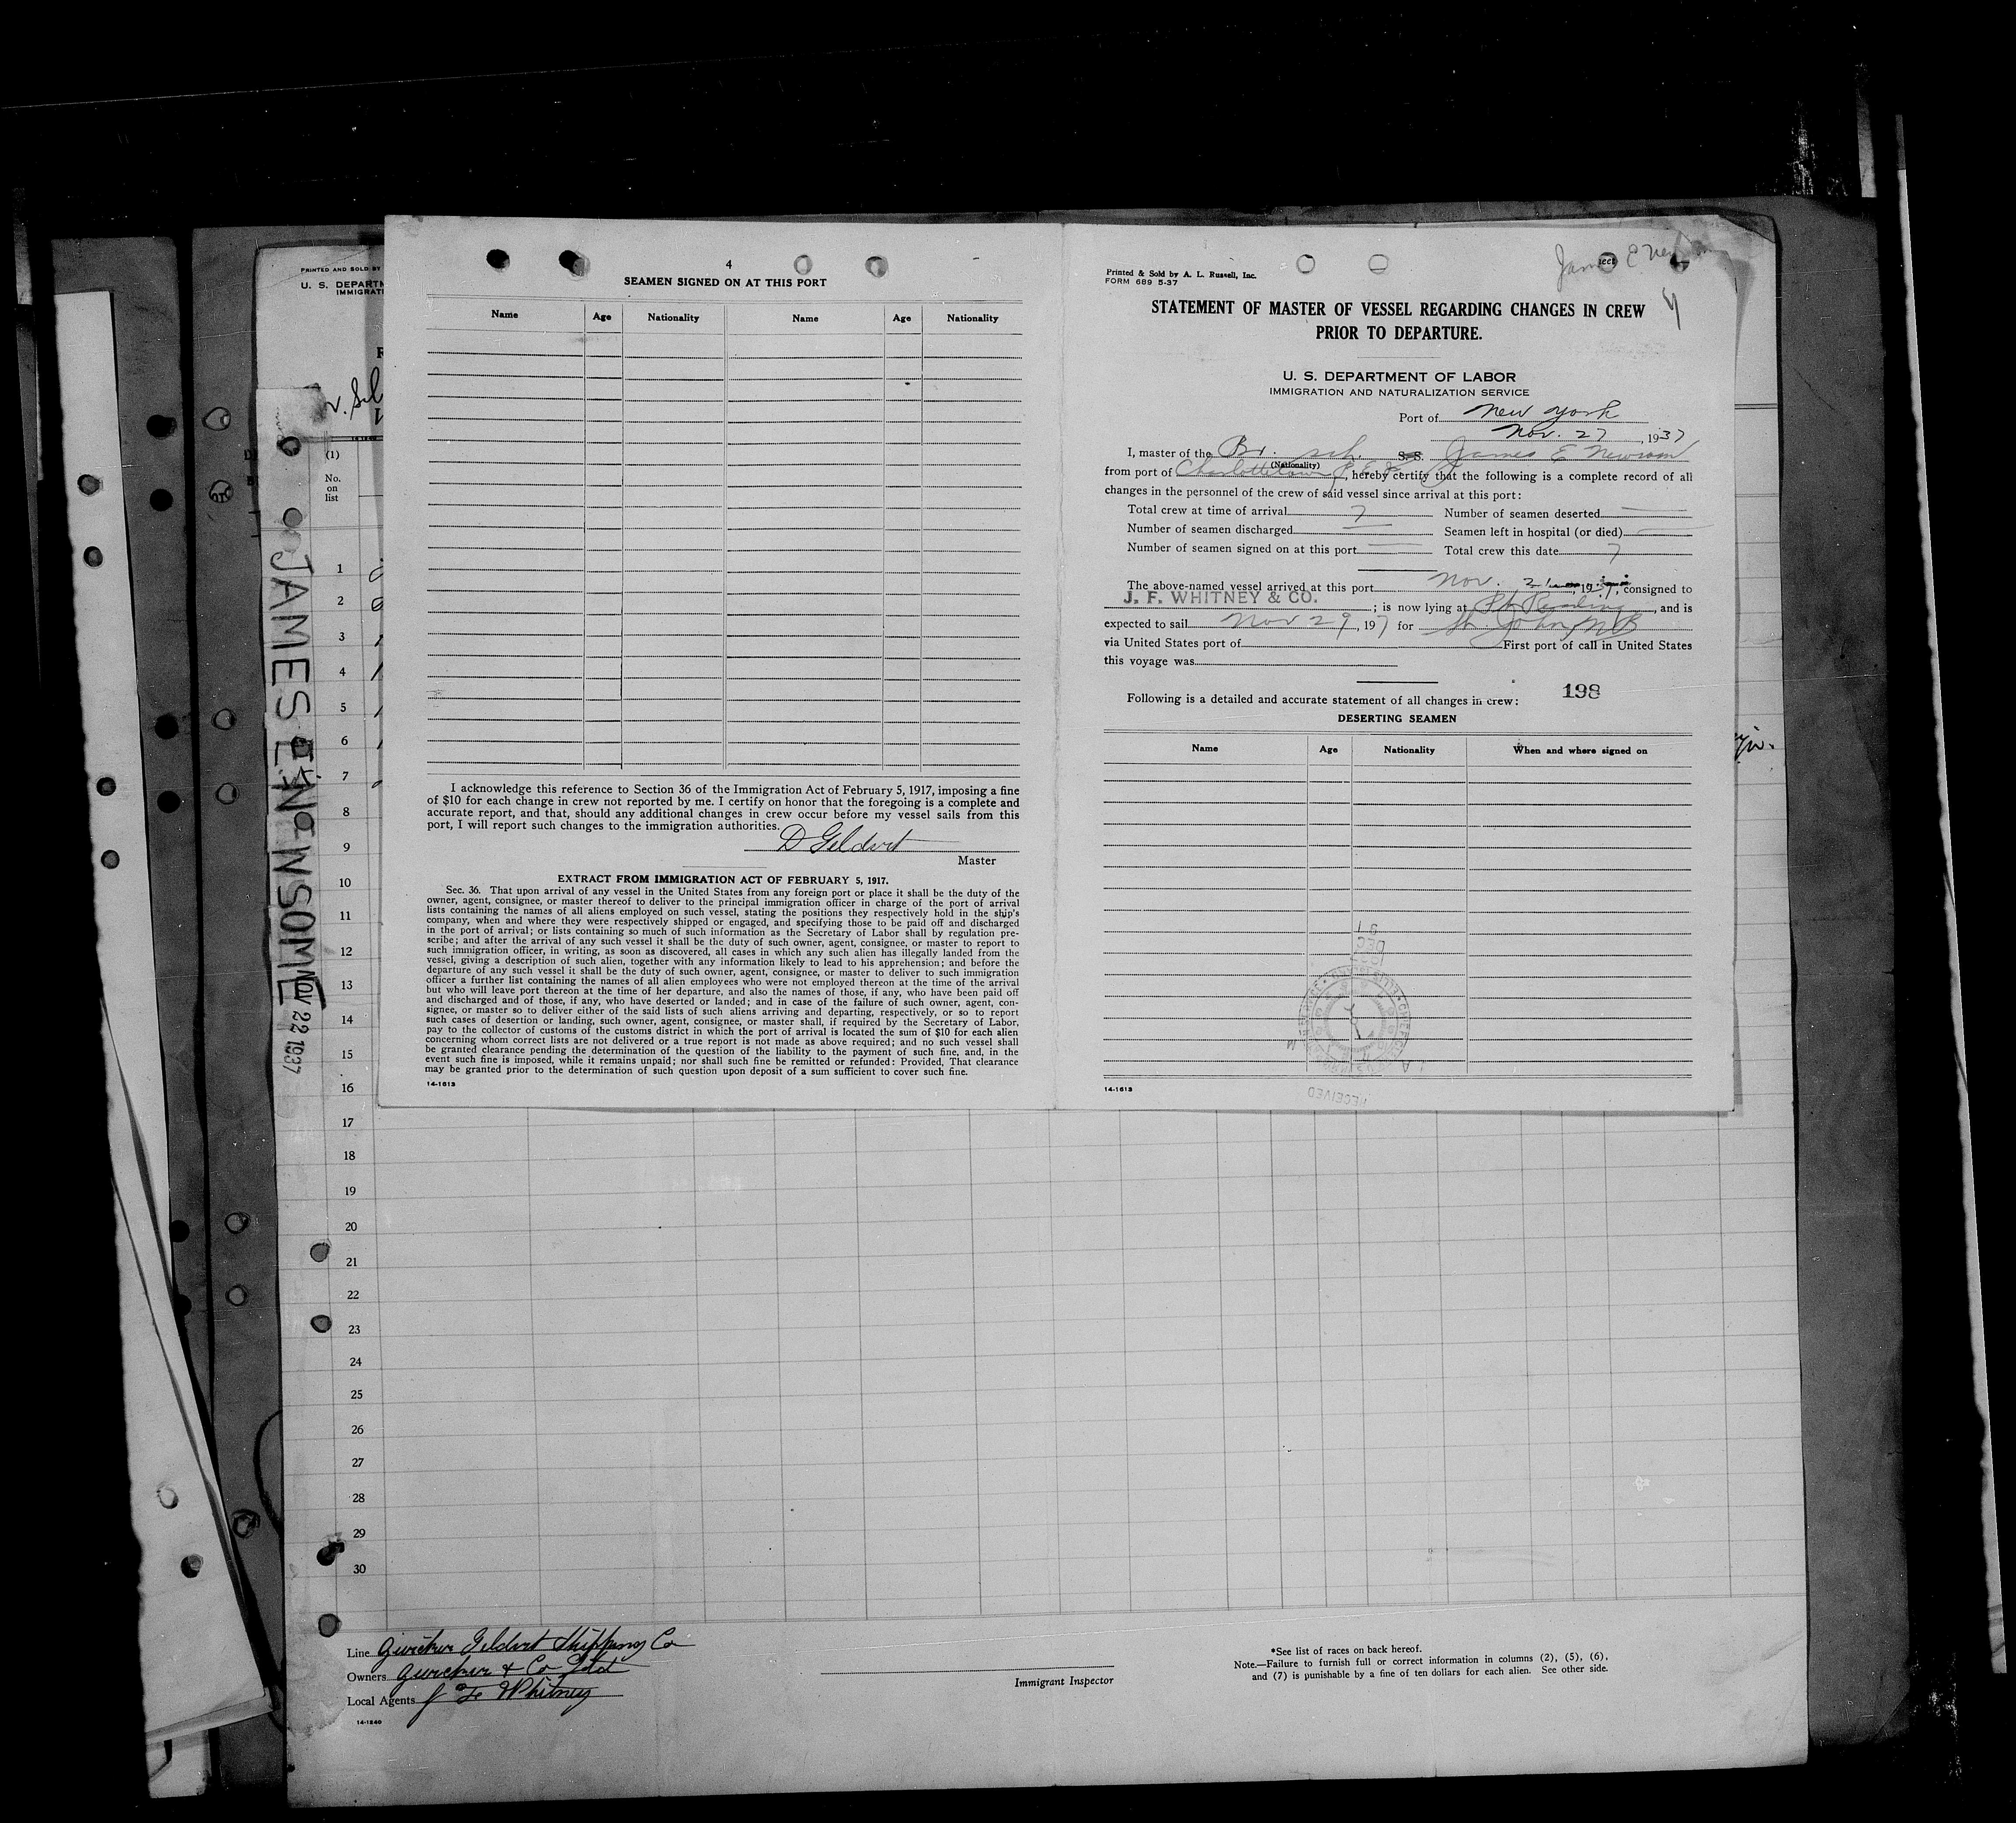 PRINTED AND SOLD BY
U. S. DEPARTM
IMMIGRATI
(1)
No.
on
list
JAMES E. NEWSOME
NOV 22 1937
4
SEAMEN SIGNED ON AT THIS PORT
Name Age Nationality Name Age Nationality
I acknowledge this reference to Section 36 of the Immigration Act of February 5, 1917, imposing a fine
of $10 for each change in crew not reported by me. I certify on honor that the foregoing is a complete and
accurate report, and that, should any additional changes in crew occur before my vessel sails from this
port, I will report such changes to the immigration authorities.
D Geldert
Master
EXTRACT FROM IMMIGRATION ACT OF FEBRUARY 5, 1917.
Sec. 36. That upon arrival of any vessel in the United States from any foreign port or place it shall be the duty of the
owner, agent, consignee, or master thereof to deliver to the principal immigration officer in charge of the port of arrival
lists containing the names of all aliens employed on such vessel, stating the positions they respectively hold in the ship's
company, when and where they were respectively shipped or engaged, and specifying those to be paid off and discharged
in the port of arrival; or lists containing so much of such information as the Secretary of Labor shall by regulation pre-
scribe; and after the arrival of any such vessel it shall be the duty of such owner, agent, consignee, or master to report to
such immigration officer, in writing, as soon as discovered, all cases in which any such alien has illegally landed from the
vessel, giving a description of such alien, together with any information likely to lead to his apprehension; and before the
departure of any such vessel it shall be the duty of such owner, agent, consignee, or master to deliver to such immigration
officer a further list containing the names of all alien employees who were not employed thereon at the time of the arrival
but who will leave port thereon at the time of her departure, and also the names of those, if any, who have been paid off
and discharged and of those, if any, who have deserted or landed; and in case of the failure of such owner, agent, con-
signee, or master so to deliver either of the said lists of such aliens arriving and departing, respectively, or so to report
such cases of desertion or landing, such owner, agent, consignee, or master shall, if required by the Secretary of Labor,
pay to the collector of customs of the customs district in which the port of arrival is located the sum of $10 for each alien
concerning whom correct lists are not delivered or a true report is not made as above required; and no such vessel shall
be granted clearance pending the determination of the question of the liability to the payment of such fine, and, in the
event such fine is imposed, while it remains unpaid; nor shall such fine be remitted or refunded: Provided, That clearance
may be granted prior to the determination of such question upon deposit of a sum sufficient to cover such fine.
14-1613
Printed & Sold by A. L. Russell, Inc.
FORM 689 5-37
STATEMENT OF MASTER OF VESSEL REGARDING CHANGES IN CREW
PRIOR TO DEPARTURE.
U. S. DEPARTMENT OF LABOR
IMMIGRATION AND NATURALIZATION SERVICE
Port of New York
Nov. 27, 1937
I, master of the Br. sch. S. S. James E Newsom
(Nationality)
from port of Charlottetown P.E.I., hereby certify that the following is a complete record of all
changes in the personnel of the crew of said vessel since arrival at this port:
Total crew at time of arrival 7 Number of seamen deserted
Number of seamen discharged Seamen left in hospital (or died)
Number of seamen signed on at this port Total crew this date 7
The above-named vessel arrived at this port Nov. 21, 1937, consigned to
J. F. WHITNEY & CO.; is now lying at Pt Reading, and is
expected to sail Nov 29, 197 for St. John, NB
via United States port of First port of call in United States
this voyage was
Following is a detailed and accurate statement of all changes in crew: 198
DESERTING SEAMEN
Name Age Nationality When and where signed on
DEC
RECEIVED
14-1613
1
2
3
4
5
6
7
8
9
10
11
12
13
14
15
16
17
18
19
20
21
22
23
24
25
26
27
28
29
30
Line Geldert Shipping Co
Owners & Co Ltd
Local Agents J F Whitney
14-1240
Immigrant Inspector
*See list of races on back hereof.
Note.—Failure to furnish full or correct information in columns (2), (5), (6),
and (7) is punishable by a fine of ten dollars for each alien. See other side.